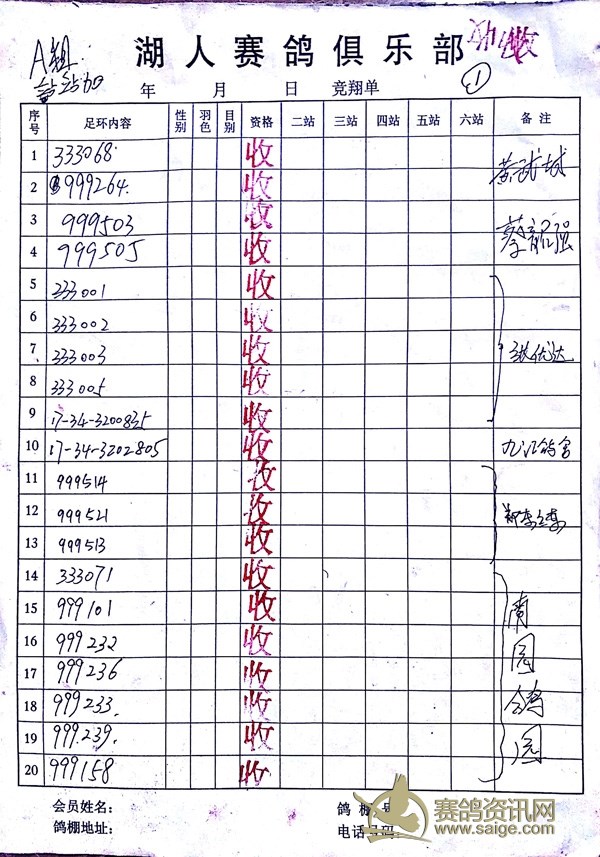 A组
湖人赛鸽俱乐部
收
站站加
年 月 日 竞翔单
①
序号 足环内容 性别 羽色 目别 资格 二站 三站 四站 五站 六站 备注
1 333068 收
2 999264. 收
3 999503 收
4 999505 收
5 333001 收
6 333002 收
7 333003 收
8 333005 收
9 17-34-3200835 收
10 17-34-3202805 收
11 999514 收
12 999521 收
13 999513 收
14 333071 收
15 999101 收 南
16 999232 收 园
17 999236 收 鸽
18 999233 收
19 999.239. 收 园
20 999158 收
会员姓名:
鸽棚号
鸽棚地址:
电话号码:
赛鸽资讯网
www.saige.com